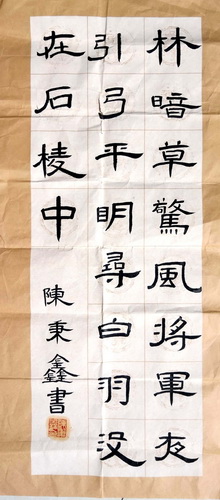 林暗草驚風將軍夜
引弓平明尋白羽没
在石棱中
陳秉鑫書